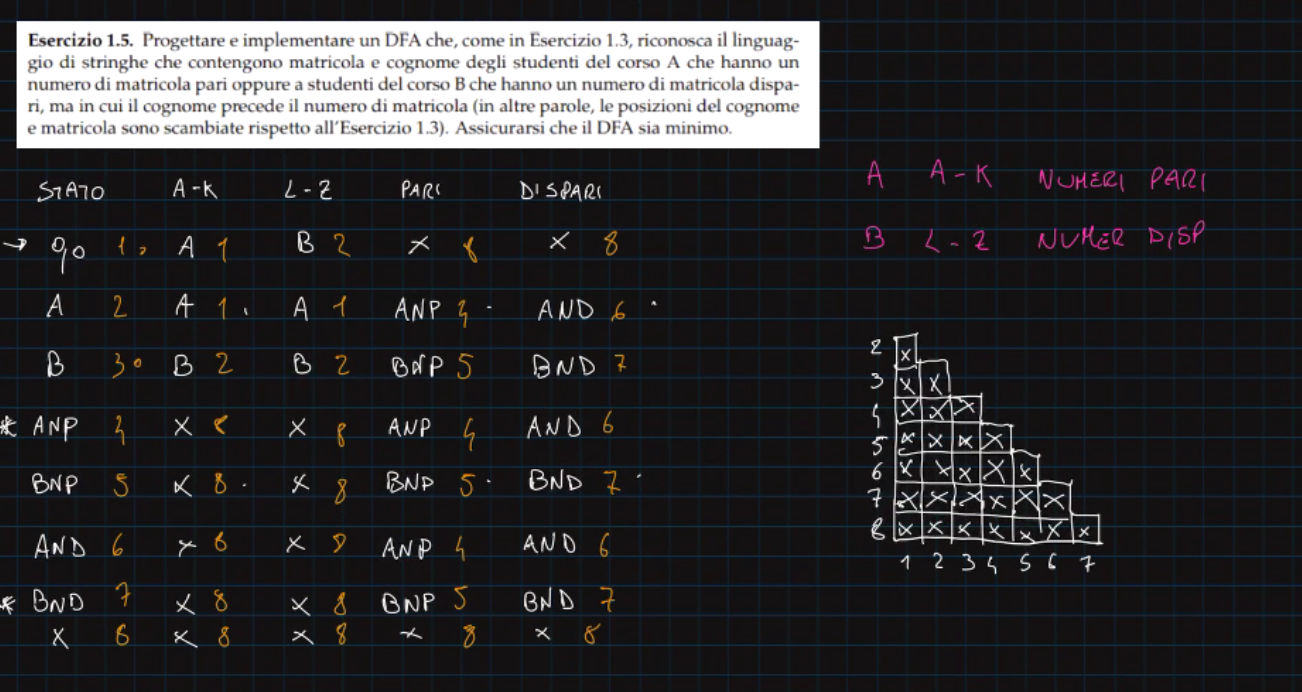 Esercizio 1.5. Progettare e implementare un DFA che, come in Esercizio 1.3, riconosca il linguag-
gio di stringhe che contengono matricola e cognome degli studenti del corso A che hanno un
numero di matricola pari oppure a studenti del corso B che hanno un numero di matricola dispa-
ri, ma in cui il cognome precede il numero di matricola (in altre parole, le posizioni del cognome
e matricola sono scambiate rispetto all'Esercizio 1.3). Assicurarsi che il DFA sia minimo.
A A-K NUMERI PARI
B L-Z NUMER DISP
STATO A-K L-Z PARI DISPARI
→ q0 1 A 1 B 2 X 8 X 8
A 2 A 1 A 1 ANP 4 AND 6
B 3 B 2 B 2 BNP 5 BND 7
* ANP 4 X 8 X 8 ANP 4 AND 6
BNP 5 X 8 X 8 BNP 5 BND 7
AND 6 X 8 X 8 ANP 4 AND 6
* BND 7 X 8 X 8 BNP 5 BND 7
X 8 X 8 X 8 X 8 X 8
2 X
3 X X
4 X X X
5 X X X X
6 X X X X X
7 X X X X X X
8 X X X X X X X
1 2 3 4 5 6 7